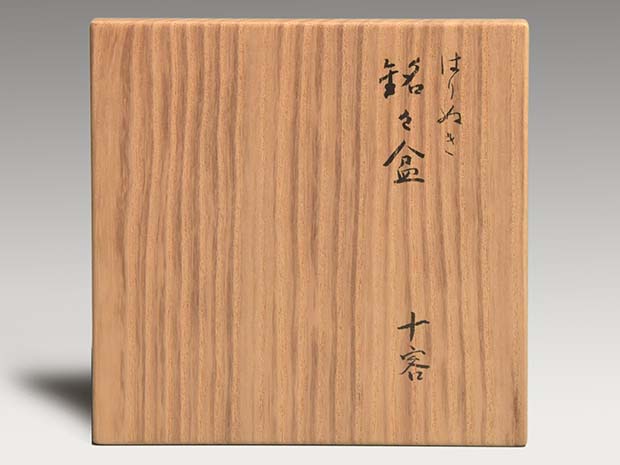 はりぬき
銘々盆
十客